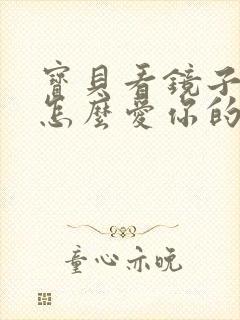 寶貝看鏡子
怎麼愛你的
童心亦晚